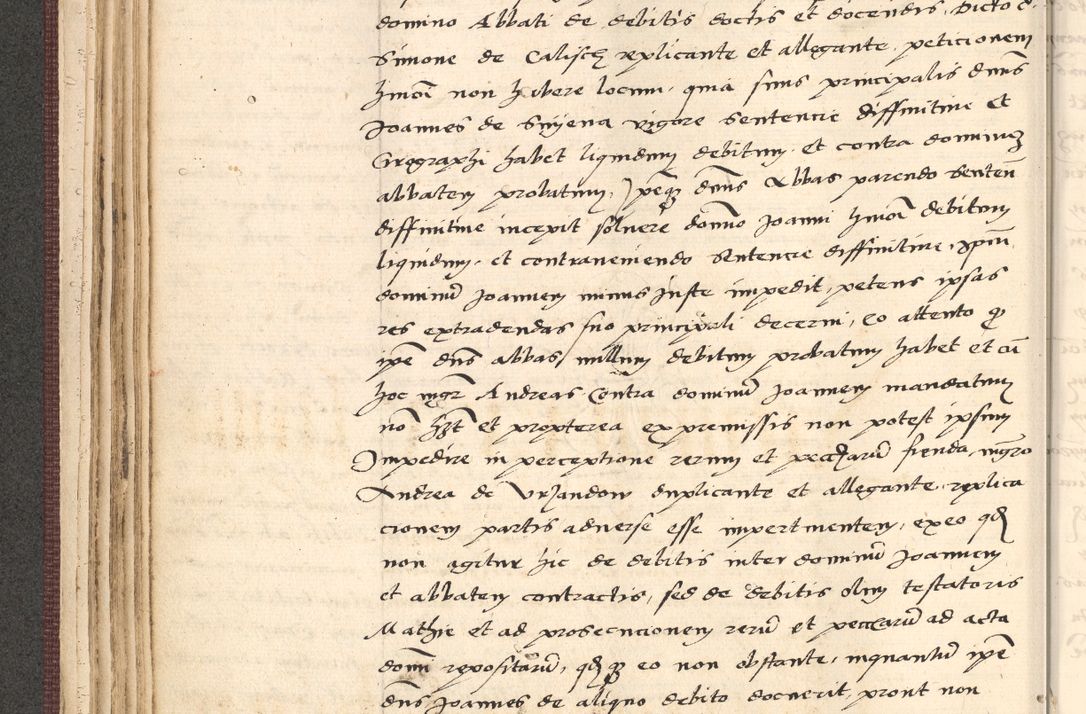 domino Abbati de debitis doctis et docendis, Dicto d.
Simone de Calisch replicante et allegante, peticionem
hmoi non habere locum, quia suus principalis dnus
Joannes de Snyena vigore sentencie diffinitive et
Cirographi habet liquidum debitum, et contra dominum
abbatem probatum, Ipeque dnus Abbas parendo senten
diffinitive incepit solvere domno Joanni hmoi debitum
liquidum, et contraveniendo sentencie diffinitive,
dominum Joannem minus juste impedit, petens ipsas
res extradendas suo principali decerni, eo attento quod
ipse dnus abbas nullum debitum probatum habet et cum
hoc mgr Andreas Contra dominum Joannem mandatum
non het et propterea ex premissis non potest ipsum
Impedire in perceptione rerum et pecciarum fienda, mgro
Andrea de Urzandow duplicante et allegante, replica
cionem partis adverse esse impertinentem, ex eo quod
non agitur hic de debitis inter dominum Joannem
et abbatem contractis, sed de debitis olim testatoris
Mathie et ad prosecucionem rerum et pecciarum ad acta
domini repositarum, quodque eo non obstante, inquantum ipse
dnus Joannes de aliquo debito docuerit, prout non